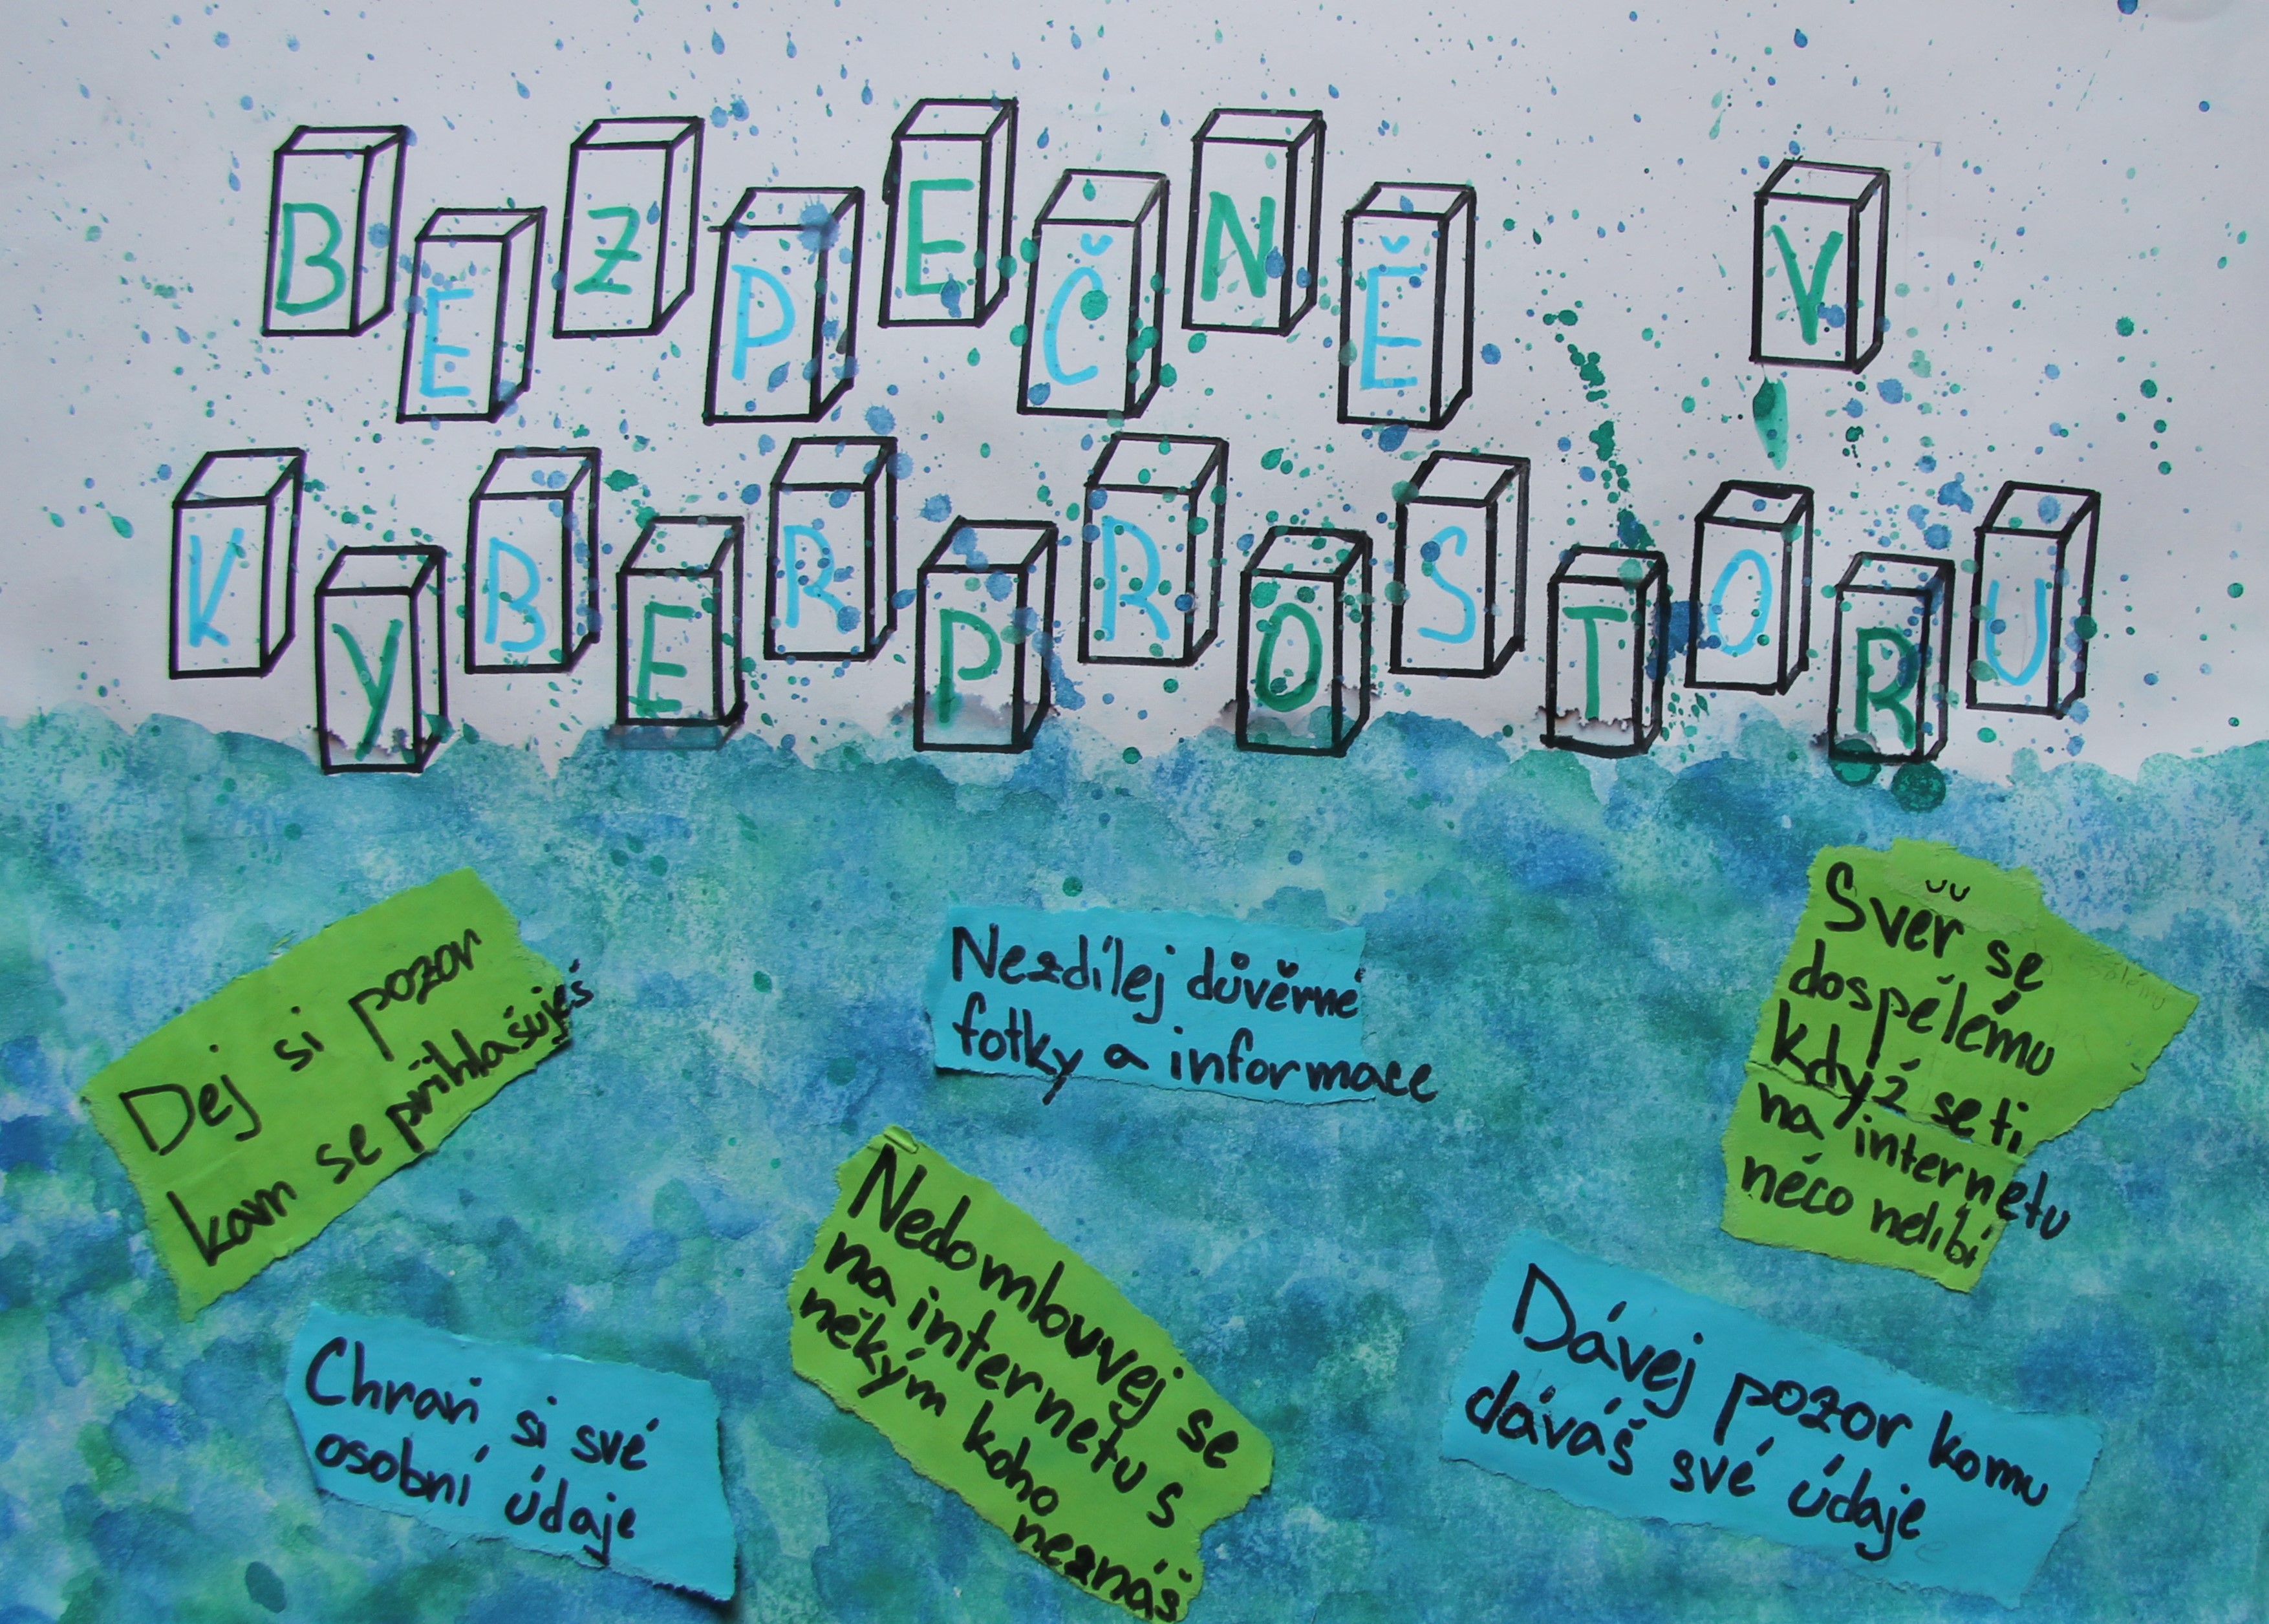 BEZPEČNĚ V
KYBERPROSTORU
Dej si pozor
kam se přihlašuješ
Nezdílej důvěrné
fotky a informace
Svěř se
dospělému
Když se ti
na internetu
něco nelíbí
Chraň si své
osobní údaje
Nedomlouvej se
na internetu s
někým koho
neznáš
Dávej pozor komu
dáváš své údaje